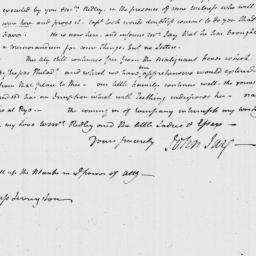 executed by you & Mrs. Ridley, in the presence of some Witness who will
come here and prove it. Capt. will doubtless consent to do you that
favor. He is now here, and informs Mr. Jay that he has brought
a memorandum for some Things, but no Letters.
This city still continues free from the malignant fever which
Philada. and which we have apprehensions would extend
from that place to this — our little Family continue well. the
has an Eruption which with Teething indisposes her —
is at Rye — the coming in of company interrupts my writing
my love to Mrs. Ridley and the little Ladies at Essex —
Yours sincerely
John Jay
up the Blanks in
Livingston